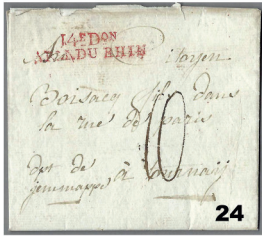 14E DON
ARM. DU RHIN
Citoyen
Boisacq fils dans
la rue de paris
10
dpt de
jemmappe à tournaij
24